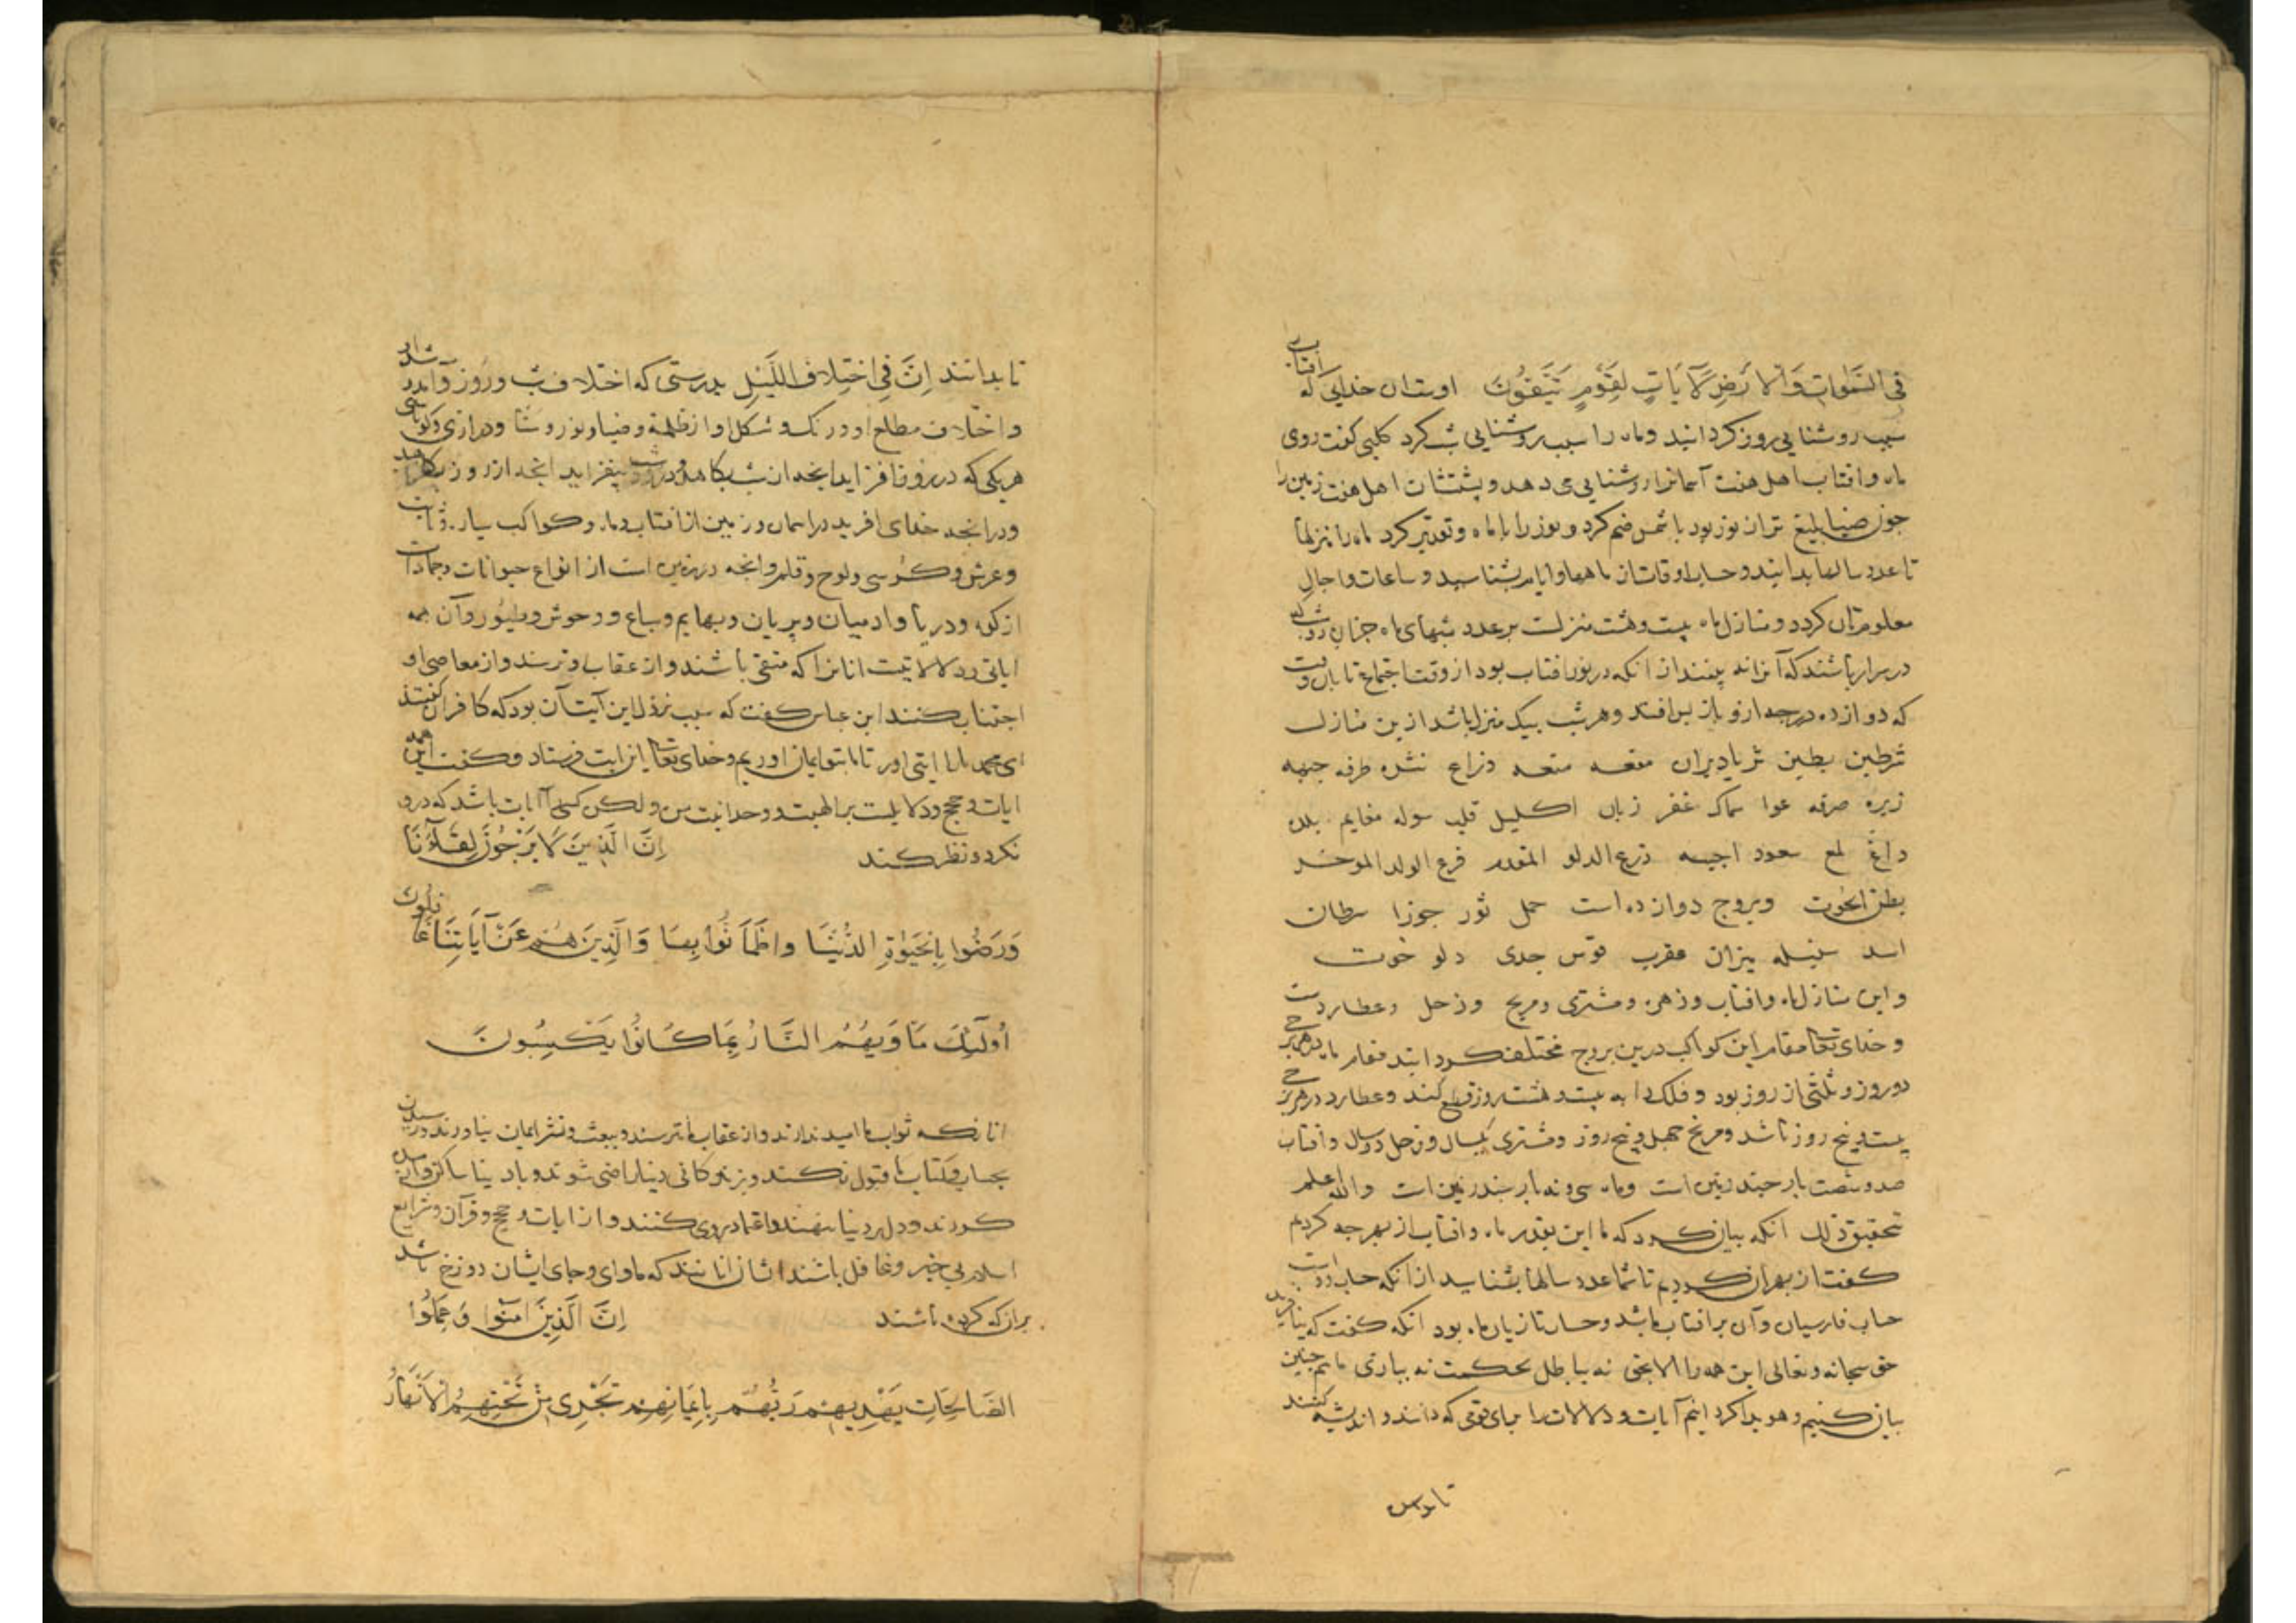 في السموات والارض لآيات لقوم يتقون اوست ان خدايى كه افتاب را
سبب روشنايى روز كردانيد وماه را سبب روشنايى شب كرد كلبى كفت روى
ماه وافتاب اهل هفت آسمانرا روشنايى مى دهد وپشتشان اهل هفت زمين را
جون ضيا بليغ تر ان نور بود با شمس ضم كرد ونور را با ماه وتقدير كرد ماه را منزلها
تا عدد سالها بدانيد وحساب اوقات ان ماهها وايام بشناسيد وساعات واجال
معلومتان كردد ومنازل ماه بيست وهشت منزلست بر عدد شبهاى ماه جز ان دو شب كه
در سرار باشند كه آنرا نه بينند از انكه در نور افتاب بود از وقت اجتماع تا بان وقت
كه دوازده درجه ازو باز پس افتد وهر شب بيك منزل باشد ازين منازل
شرطين بطين ثريا دبران هقعه هنعه ذراع نثره طرفه جبهه
زبره صرفه عوا سماك غفر زبان اكليل قلب سوله مغايم بلده
داغ لمع سعود اجبيه فرع الدلو المقدم فرع الولد الموخر
بطن الحوت وبروج دوازده است حمل ثور جوزا سرطان
اسد سنبله ميزان عقرب قوس جدى دلو حوت
واين منازل ماه وافتاب وزهره ومشترى ومريخ وزحل وعطارد است
وخداى تعالى مقام اين كواكب درين بروج مختلف كردانيد مقام ماه در هر برجى
دو روز وثلثى از روز بود وفلك را به بيست وهشت روز قطع كند وعطارد در هر برجى
بيست وپنج روز باشد ومريخ چهل وپنج روز ومشترى يكسال وزحل دو سال وافتاب
صد وشصت بار چند زمين است وماه سى ونه بار چند زمين است والله اعلم
تحقيق ذلك انكه بيان كرد كه ما اين بقدير ماه وافتاب از بهر چه كرديم
كفت از بهر ان كرديم تا شما عدد سالها بشناسيد از انكه حساب دو است
حساب فارسيان وآن بر افتاب باشد وحساب تازيان ماه بود انكه كفت كه نيافريد
حق سبحانه وتعالى اين همه را الا بحق نه بباطل بحكمت نه ببازى ما هم چنين
بيان كنيم وهويدا كردانيم آيات ودلالات را براى قومى كه دانند وانديشه كنند
تا بدانند
تا بدانند اِنَّ فِي اختِلافِ اللَّيلِ بدرستى كه اختلاف شب وروز وآمد وشد ان
واختلاف مطلع او در رنك وشكل او از ظلمة وضيا ونور وسنا ودرازى وكوتاهى
هريكى كه در روز بفزايد انجه از شب بكاهد ودر شب بيفزايد انجه از روز بكاهد
ودر انجه خداى افريد در اسمان وزمين از افتاب وماه وكواكب سياره وثابت
وعرش وكرسى ولوح وقلم وانجه در زمين است از انواع حيوانات وجمادات
از كوه ودريا وادميان وپريان وبهايم وسباع ووحوش وطيور وآن همه
اياتى ودلالاتيست انانرا كه متقى باشند واز عقاب او ترسند واز معاصى او
اجتناب كنند ابن عباس كفت كه سبب نزول اين آيت آن بود كه كافران كفتند
اى محمد ما را ايتى اور تا ما بتو ايمان اوريم وخداى تعالى اين ايت فرستاد وكفت اين همه
ايات وحجج ودلايلست بر الهيت ووحدانيت من ولكن كسى را آيات باشد كه درو
نكرد ونظر كند اِنَّ الَّذينَ لَا يَرْجُونَ لِقَآءَنَا
وَرَضُوا بِالحَيوٰةِ الدُّنْيَا وَاطْمَأَنُّوا بِهَا وَالَّذِينَ هُمْ عَنْ آيَاتِنَا غَافِلُونَ
أُولَٰئِكَ مَأْوَيٰهُمُ النَّارُ بِمَا كَانُوا يَكْسِبُونَ
انانكه ثواب ما اميد ندارند واز عقاب ما نترسند وببعث ونشر ايمان نياورند ورسيدن
بحساب وكتاب ما قبول نكنند وبزندكانى دنيا راضى شوند وبا دنيا ساكن واسوده
كردند ودل بر دنيا نهند واعتماد بروى كنند واز ايات وحجج وقرآن وشرايع
اسلام بى خبر وغافل باشند ايشان انانند كه ماواى وجاى ايشان دوزخ باشد
بر انكه كرده باشند اِنَّ الَّذِينَ آمَنُوا وَعَمِلُوا
الصَّالِحَاتِ يَهْدِيهِمْ رَبُّهُمْ بِإِيمَانِهِمْ تَجْرِي مِنْ تَحْتِهِمُ الْأَنْهَارُ